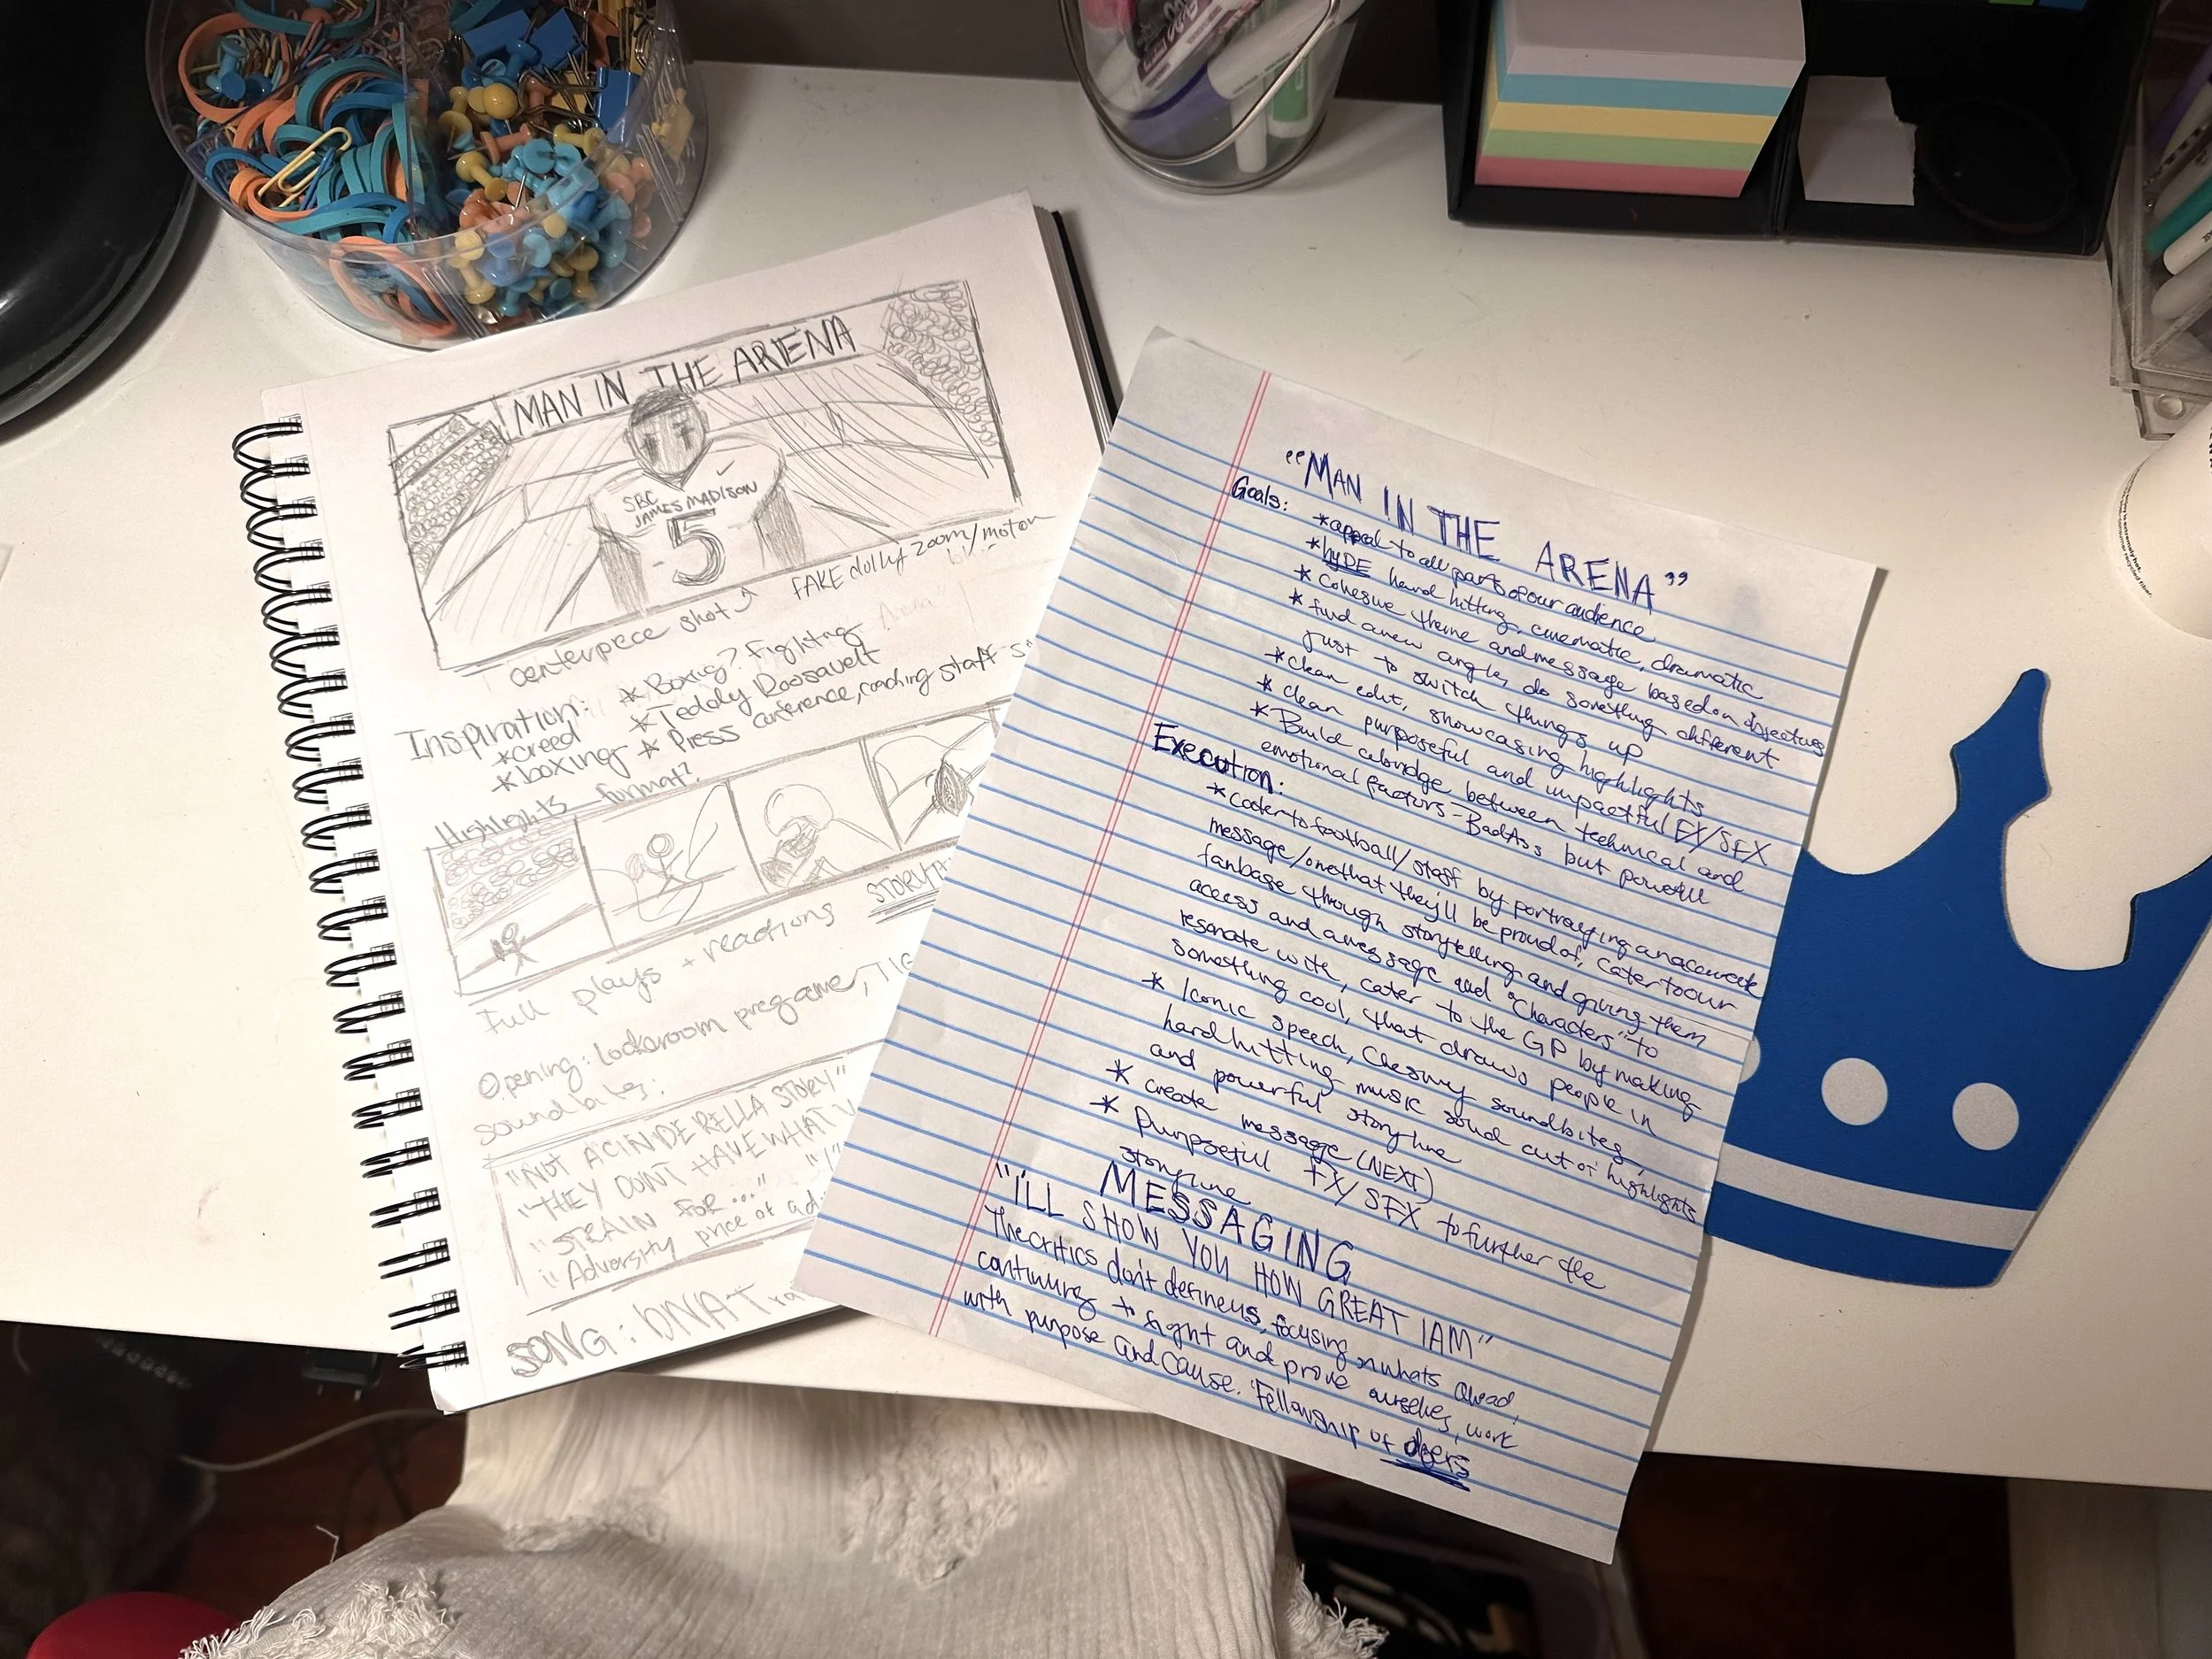 MAN IN THE ARENA
SBC
JAMES MADISON
5
centerpiece shot
FAKE dolly zoom/motion
Inspiration:
*Boxing? Fighting
*creed
*Teddy Roosavelt
*boxing
*Press conference, coaching staff
Highlights format?
STORYT
Full plays + reactions
Opening: lockeroom pregame,
soundbites:
"NOT A CINDERELLA STORY"
"THEY DON'T HAVE WHAT
"STRAIN FOR..."
"Adversity price of ad
SONG: DNA
"MAN IN THE ARENA"
Goals:
*appeal to all parts of our audience
*hyDE hard hitting, cinematic, dramatic
*Cohesive theme and message based on objectives
*find a new angle, do something different
just to switch things up
*clean edit, showcasing highlights
*clean purposeful and impactful FX/SFX
*Build a bridge between technical and
emotional factors-BadAss but powerful
Execution:
*Cater to football/staff by portraying a
message/one that they'll be proud of, Cater to our
fanbase through storytelling and giving them
access and a message and "Characters" to
resonate with, cater to the GP by making
something cool, that draws people in
*Iconic speech, Chesney soundbites,
hard hitting music solid cut of highlights
and powerful storyline
*create message (NEXT)
*Purpseful FX/SFX to further the
storyline
MESSAGING
"I'LL SHOW YOU HOW GREAT I AM"
The critics don't define us, focusing on whats ahead,
continuing to fight and prove ourselves, work
with purpose and cause. "Fellowship of doers